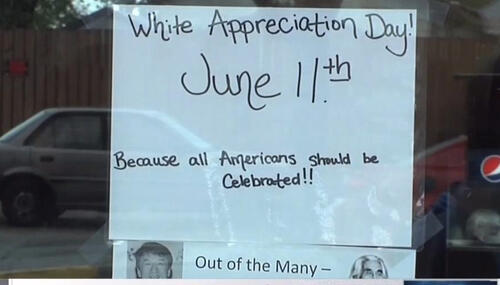 White Appreciation Day!
June 11th
Because all Americans should be
Celebrated!!
Out of the Many –